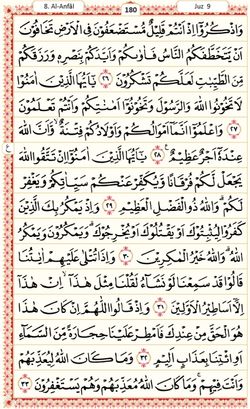 8. Al-Anfâl 180 Juz 9
وَاذْكُرُوْٓا اِذْ اَنْتُمْ قَلِيْلٌ مُّسْتَضْعَفُوْنَ فِى الْاَرْضِ تَخَافُوْنَ
اَنْ يَّتَخَطَّفَكُمُ النَّاسُ فَاٰوٰىكُمْ وَاَيَّدَكُمْ بِنَصْرِهٖ وَرَزَقَكُمْ
مِّنَ الطَّيِّبٰتِ لَعَلَّكُمْ تَشْكُرُوْنَ ٢٦ يٰٓاَيُّهَا الَّذِيْنَ اٰمَنُوْا
لَا تَخُوْنُوا اللّٰهَ وَالرَّسُوْلَ وَتَخُوْنُوْٓا اَمٰنٰتِكُمْ وَاَنْتُمْ تَعْلَمُوْنَ
٢٧ وَاعْلَمُوْٓا اَنَّمَآ اَمْوَالُكُمْ وَاَوْلَادُكُمْ فِتْنَةٌ ۙ وَّاَنَّ اللّٰهَ
عِنْدَهٗٓ اَجْرٌ عَظِيْمٌ ٢٨ يٰٓاَيُّهَا الَّذِيْنَ اٰمَنُوْٓا اِنْ تَتَّقُوا اللّٰهَ
يَجْعَلْ لَّكُمْ فُرْقَانًا وَّيُكَفِّرْ عَنْكُمْ سَيِّاٰتِكُمْ وَيَغْفِرْ
لَكُمْ ۗ وَاللّٰهُ ذُو الْفَضْلِ الْعَظِيْمِ ٢٩ وَاِذْ يَمْكُرُ بِكَ الَّذِيْنَ
كَفَرُوْا لِيُثْبِتُوْكَ اَوْ يَقْتُلُوْكَ اَوْ يُخْرِجُوْكَ ۗ وَيَمْكُرُوْنَ وَيَمْكُرُ
اللّٰهُ ۗ وَاللّٰهُ خَيْرُ الْمٰكِرِيْنَ ٣٠ وَاِذَا تُتْلٰى عَلَيْهِمْ اٰيٰتُنَا
قَالُوْا قَدْ سَمِعْنَا لَوْ نَشَاۤءُ لَقُلْنَا مِثْلَ هٰذَآ ۙ اِنْ هٰذَآ
اِلَّآ اَسَاطِيْرُ الْاَوَّلِيْنَ ٣١ وَاِذْ قَالُوا اللّٰهُمَّ اِنْ كَانَ هٰذَا
هُوَ الْحَقَّ مِنْ عِنْدِكَ فَاَمْطِرْ عَلَيْنَا حِجَارَةً مِّنَ السَّمَاۤءِ
اَوِ ائْتِنَا بِعَذَابٍ اَلِيْمٍ ٣٢ وَمَا كَانَ اللّٰهُ لِيُعَذِّبَهُمْ
وَاَنْتَ فِيْهِمْ ۗ وَمَا كَانَ اللّٰهُ مُعَذِّبَهُمْ وَهُمْ يَسْتَغْفِرُوْنَ ٣٣